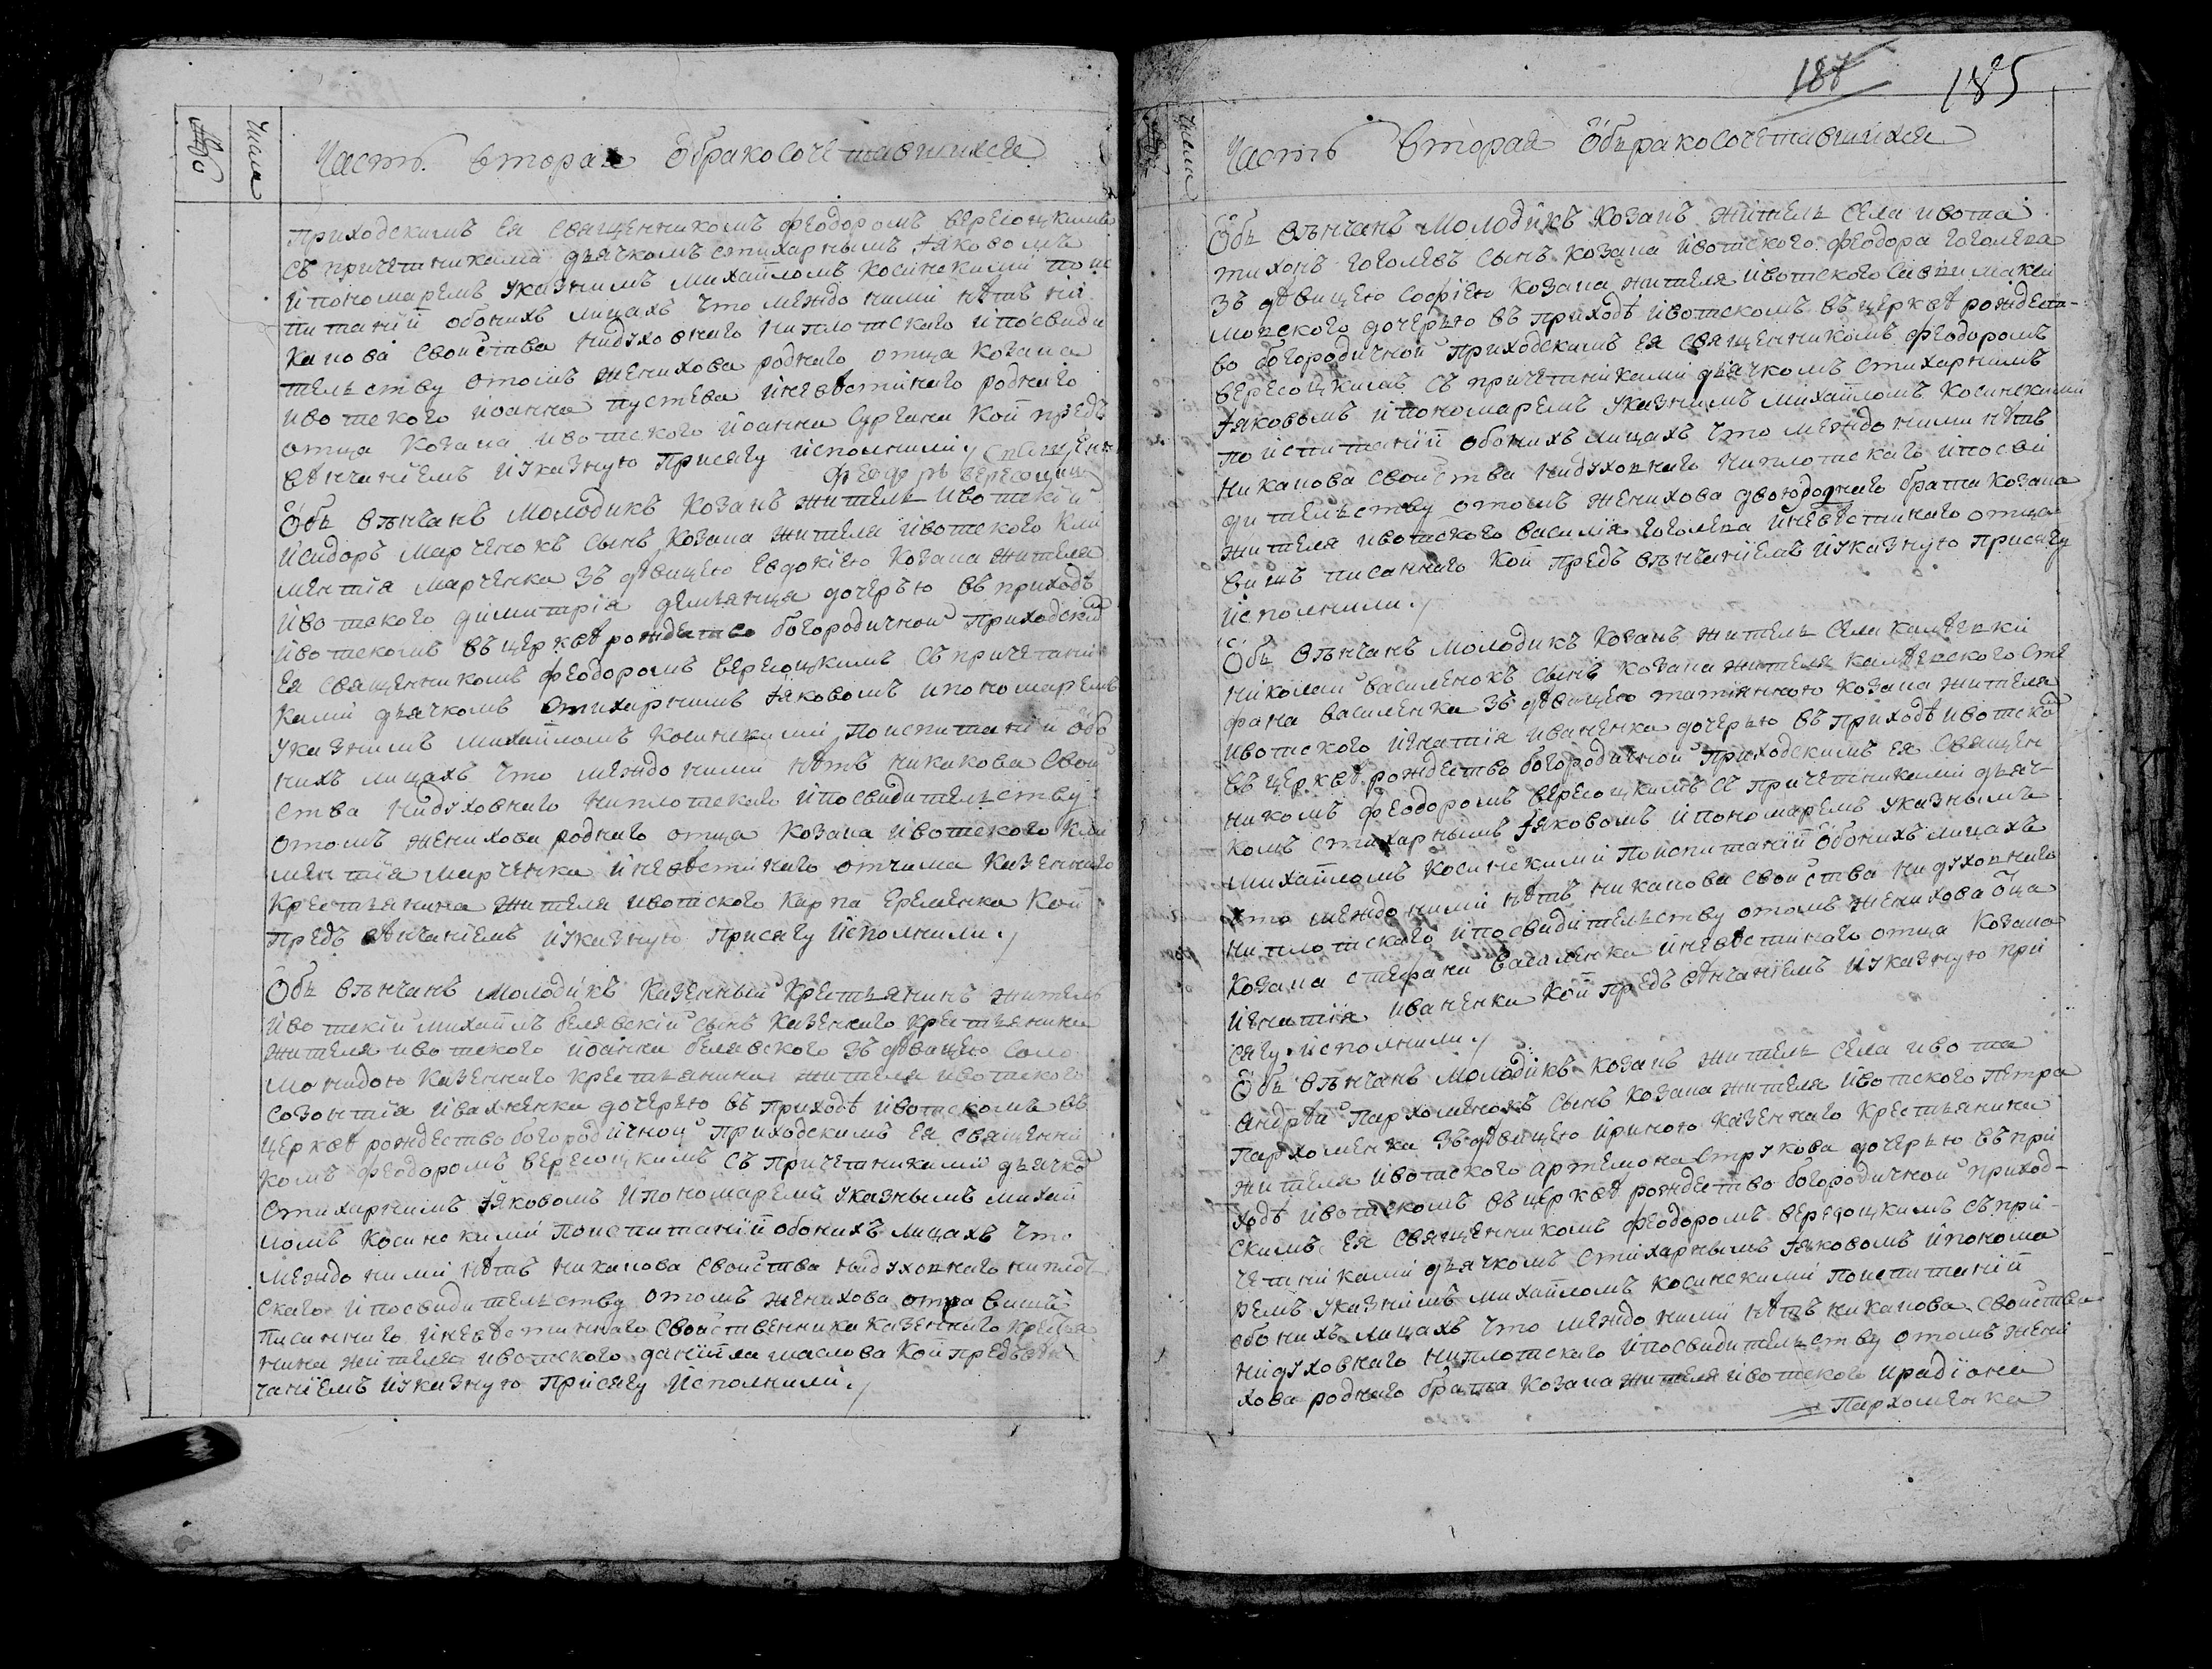 №
Числа
Часть вторая Обракосочетавшихся
приходскимъ Ея Священникомъ Феодоромъ Вересоцкимъ
съ причетниками дьячкомъ стихарнымъ Іяковомъ
и пономаремъ указнимъ Михайломъ Косинскими по ис
питаніи обоихъ лицахъ что междо ними нѣтъ ни
какова свойства нидуховнаго ниплотскаго ипосвиди
тельству отомъ женихова роднаго отца козака
ивотского иоанна пустева иневѣстинаго роднаго
отца козака ивотского иоанна Сургана кои предъ
вѣнчаніемъ иуказную присягу исполнили ./ Священн
Феодоръ Вересоцкій
Обвѣнчанъ молодикъ козакъ житель ивотскій
Исидоръ Марченокъ сынъ козака жителя ивотского Кли
ментія Марченка зъ дѣвицею Евдокіею козака жителя
ивотского димитрія демьянца дочерью въ приходѣ
ивотскомъ въ церквѣ рождество богородичной приходским
Ея священникомъ феодоромъ вересоцкимъ съ причетни
ками дьячкомъ стихарнимъ Іяковомъ ипономаремъ
указнимъ михайломъ косинскими поиспитаніи обо
ихъ лицахъ что междо ними нѣтъ никакова свой
ства нидуховнаго ниплотскаго ипосвидительству
отомъ женихова роднаго отца козака ивотского Кли
ментія Марченка иневѣстинаго отчима казеннаго
крестьянина жителя ивотского Карпа Еременка кои
предъ вѣнчаніемъ иуказную присягу исполнили ./
Обвѣнчанъ молодикъ казенный крестьянинъ житель
ивотскій михаилъ белявскій сынъ казеннаго крестьянина
жителя ивотского иоанна белявского зъ дѣвицею Соло
монидою казеннаго крестьянина жителя ивотского
созонтія ивахненка дочерью въ приходѣ ивотскомъ въ
церквѣ рождество богородичной приходскимъ Ея священни
комъ феодоромъ вересоцкимъ съ причетниками дьячком
стихарнимъ Іяковомъ ипономаремъ указнымъ михай
ломъ косинскими поиспитаніи обоихъ лицахъ что
междо ними нѣтъ никакова свойства нидуховнаго ниплот
скаго ипосвидительству отомъ женихова отца вишъ
писаннаго иневѣстинаго свойственника казеннаго крестья
нина жителя ивотского даніила маслова кои предъвѣн
чаніемъ иуказную присягу исполнили ./
187 185
Числа
Часть Вторая Обьракосочетавшихся
Обвѣнчанъ молодикъ козакъ житель села ивота
тихонъ гоголевъ сынъ козака ивотского феодора гоголева
зъ дѣвицею софіею козака жителя ивотского
дочерью въ приходѣ ивотскомъ въ церквѣ рождест-
во богородичной приходскимъ Ея священникомъ феодоромъ
вересоцкимъ съ причетниками дьячкомъ стихарнимъ
Іяковомъ ипономаремъ указнимъ михайломъ косинскими
поиспитаніи обоихъ лицахъ что междо ними нѣтъ
никакова свойства нидуховнаго ниплотскаго ипосви
дительству отомъ женихова двоюроднаго брата козака
жителя ивотского василія гоголева иневѣстинаго отца
вишъ писаннаго кои предъ вѣнчаніемъ иуказную присягу
исполнили ./
Обвѣнчанъ молодикъ козакъ житель села камѣньки
николай василенокъ сынъ козака жителя камѣнского сте
фана василенка зъ дѣвицею татіянною козака жителя
ивотского игнатія иваненка дочерью въ приходѣ ивотском
въ церквѣ рождество богородичной приходскимъ Ея священ
никомъ феодоромъ вересоцкимъ съ причетниками дьяч-
комъ стихарнымъ Іяковомъ ипономаремъ указнымъ
михайломъ косинскими поиспитаніи обоихъ лицахъ
что междо ними нѣтъ никакова свойства нидуховнаго
ниплотскаго ипосвидительству отомъ женихова оца
козака стефана василенка иневѣстинаго отца козака
игнатія иваненка кои предъ вѣнчаніемъ иуказную при
сягу исполнили ./
Обвѣнчанъ молодикъ козакъ житель села ивота
андрей пархоменокъ сынъ козака жителя ивотского петра
пархоменка зъ дѣвицею ириною казеннаго крестьянина
жителя ивотского артемона струкова дочерью въ при
ходѣ ивотскомъ въ церквѣ рождество богородичной приход-
скимъ Ея священникомъ феодоромъ вересоцкимъ съ при-
четниками дьячкомъ стихарнымъ Іяковомъ ипонома
ремъ указнимъ михайломъ косинскими поиспитаніи
обоихъ лицахъ что междо ними нѣтъ никакова свойства
нидуховнаго ниплотскаго ипосвидительству отомъ жени
хова роднаго брата козака жителя ивотского ирадіона
Пархоменка